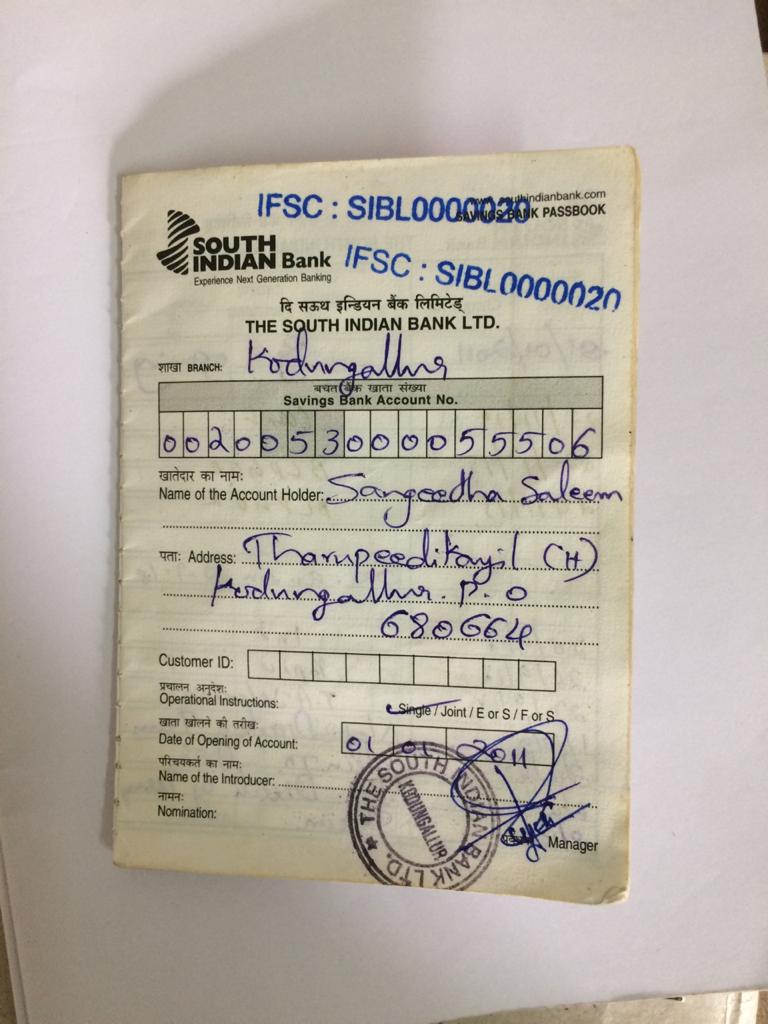 www.southindianbank.com
IFSC : SIBL0000020
SAVINGS BANK PASSBOOK
SOUTH
INDIAN Bank
Experience Next Generation Banking
IFSC : SIBL0000020
दि सऊथ इन्डियन बैंक लिमिटेड्
THE SOUTH INDIAN BANK LTD.
शाखा BRANCH: Kodungallur
बचत बैंक खाता संख्या
Savings Bank Account No.
0020053000055506
खातेदार का नाम:
Name of the Account Holder: Sangeetha Saleem
पता: Address: Tharupeedikayil (H)
Kodungallur. P. O
680664
Customer ID:
प्रचालन अनुदेश:
Operational Instructions: Single / Joint / E or S / F or S
खाता खोलने की तरीख:
Date of Opening of Account: 01 01 2011
परिचयकर्त का नाम:
Name of the Introducer:
नामन:
Nomination:
Manager
THE SOUTH INDIAN BANK LTD.
KODUNGALLUR